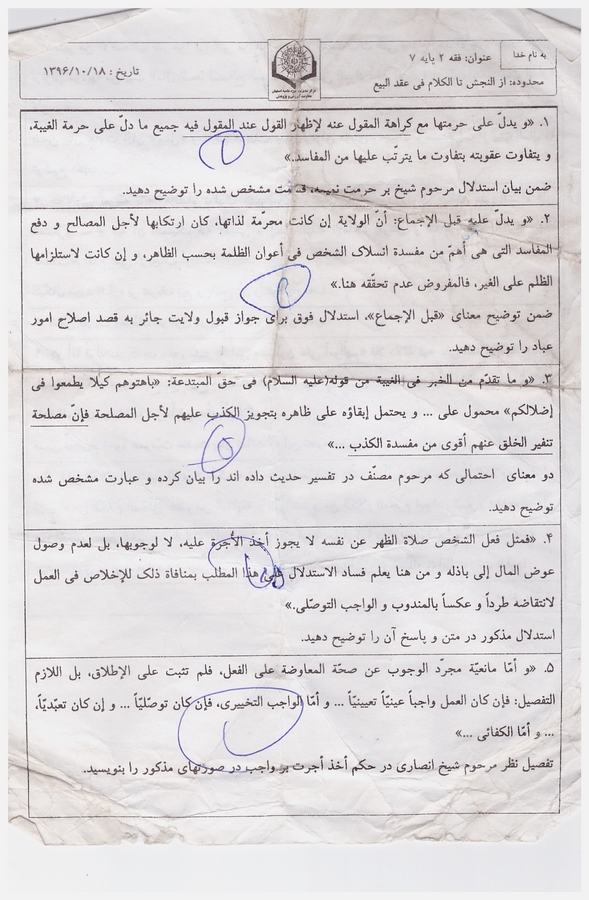 به نام خدا
عنوان: فقه ۲ پایه ۷
محدوده: از النجش تا الکلام فی عقد البیع
تاریخ : ۱۳۹۶/۱۰/۱۸
۱. «و یدلّ علی حرمتها مع کراهة المقول عنه لإظهار القول عند المقول فیه جمیع ما دلّ علی حرمة الغیبة،
و یتفاوت عقوبته بتفاوت ما یترتّب علیها من المفاسد.»
ضمن بیان استدلال مرحوم شیخ بر حرمت نمیمه، قسمت مشخص شده را توضیح دهید.
۲. «و یدلّ علیه قبل الإجماع: أنّ الولایة إن کانت محرّمة لذاتها، کان ارتکابها لأجل المصالح و دفع
المفاسد التی هی أهمّ من مفسدة انسلاک الشخص فی أعوان الظلمة بحسب الظاهر، و إن کانت لاستلزامها
الظلم علی الغیر، فالمفروض عدم تحقّقه هنا.»
ضمن توضیح معنای «قبل الإجماع»، استدلال فوق برای جواز قبول ولایت جائر به قصد اصلاح امور
عباد را توضیح دهید.
۳. «و ما تقدّم من الخبر فی الغیبة من قوله(علیه السلام) فی حقّ المبتدعة: «باهتوهم کیلا یطمعوا فی
إضلالکم» محمول علی ... و یحتمل إبقاؤه علی ظاهره بتجویز الکذب علیهم لأجل المصلحة فإنّ مصلحة
تنفیر الخلق عنهم أقوی من مفسدة الکذب ...»
دو معنای احتمالی که مرحوم مصنّف در تفسیر حدیث داده اند را بیان کرده و عبارت مشخص شده
توضیح دهید.
۴. «فمثل فعل الشخص صلاة الظهر عن نفسه لا یجوز أخذ الأجرة علیه، لا لوجوبها، بل لعدم وصول
عوض المال إلی باذله و من هنا یعلم فساد الاستدلال علی هذا المطلب بمنافاة ذلک للإخلاص فی العمل
لانتقاضه طرداً و عکساً بالمندوب و الواجب التوصّلی.»
استدلال مذکور در متن و پاسخ آن را توضیح دهید.
۵. «و أمّا مانعیّة مجرّد الوجوب عن صحّة المعاوضة علی الفعل، فلم تثبت علی الإطلاق، بل اللازم
التفصیل: فإن کان العمل واجباً عینیّاً تعیینیّاً ... و أمّا الواجب التخییری، فإن کان توصّلیّاً ... و إن کان تعبّدیّاً،
... و أمّا الکفائی ...»
تفصیل نظر مرحوم شیخ انصاری در حکم أخذ أجرت بر واجب در صورتهای مذکور را بنویسید.